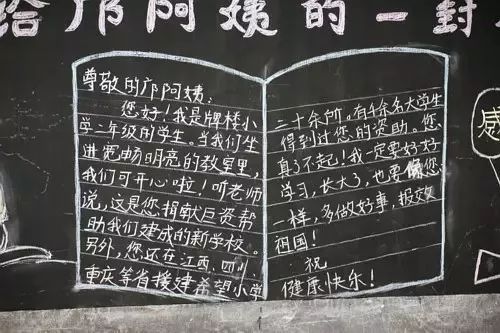 给邝阿姨的一封
尊敬的邝阿姨：
您好！我是牌楼小
学二年级的学生。当我们坐
进宽畅明亮的教室里，
我们可开心啦！听老师
说，这是您捐献巨资帮
助我们建成的新学校。
另外，您还在江西、四川
重庆等省援建希望小学
二十余所，有千余名大学生
得到过您的资助。您
真了不起！我一定要好好
学习，长大了，也要像您
一样，多做好事，报效
祖国！
祝
健康快乐！
感